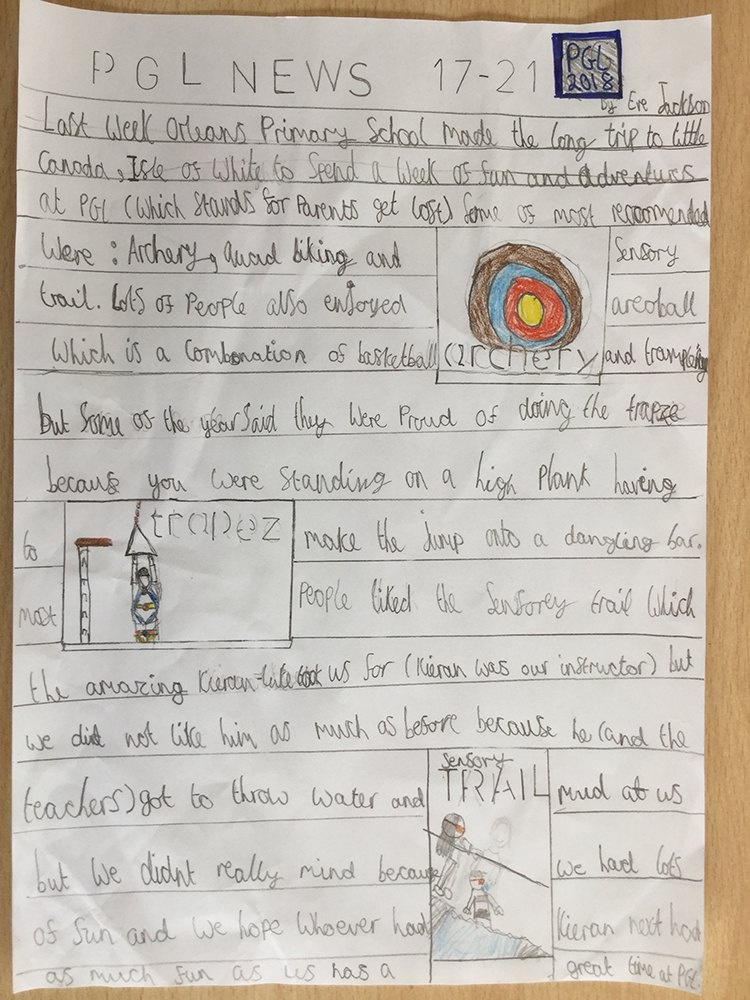 PGL NEWS 17-21 PGL 2018
by Eve Jackson
Last Week Orleans Primary School made the long trip to little
Canada, Isle of White to Spend a Week of fun and Adventurs
at PGL (Which Stands for Parents get lost) Some of most recomended
Were : Archery, quad biking and Sensory
trail. Lots of People also enjoyed areoball
Which is a combonation of basketball and trampoling
archery
but Some of the year Said they Were Proud of doing the trapze
because you were Standing on a high Plank having
to make the Jump onto a dangling bar.
trapez
most People liked the Sensorey trail Which
the amazing Kieran-Luke took us for (Kieran was our instructor) but
we did not like him as much as before because he (and the
teachers) got to throw water and mud at us
sensory
TRAIL
but We didnt really mind because we had lots
of fun and we hope Whoever had Kieran next had
as much fun as us has a great time at PGL.